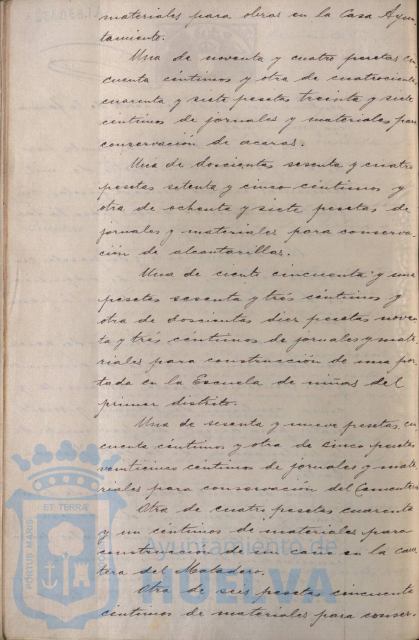 materiales para obras en la Casa Ayun-
tamiento.
Una de noventa y cuatro pesetas cin
cuenta céntimos y otra de cuatrocientas
cuarenta y siete pesetas treinta y siete
céntimos de jornales y materiales para
conservación de aceras.
Una de doscientas sesenta y cuatro
pesetas setenta y cinco céntimos y
otra de ochenta y siete pesetas de
jornales y materiales para conserva-
ción de alcantarillas.
Una de ciento cincuenta y una
pesetas sesenta y tres céntimos y
otra de doscientas diez pesetas noven
ta y tres céntimos de jornales y mate
riales para construcción de una por
tada en la Escuela de niñas del
primer distrito.
Una de sesenta y nueve pesetas cin
cuenta céntimos y otra de cinco pesetas
veinticinco céntimos de jornales y mate
riales para conservación del Cementerio
Otra de cuatro pesetas cuarenta
y un céntimos de materiales para
construcción de un caño en la carre
tera del Matadero.
Otra de seis pesetas cincuenta
céntimos de materiales para conser-
PORTUS MARIS
ET TERRA
Ayuntamiento de
HUELVA